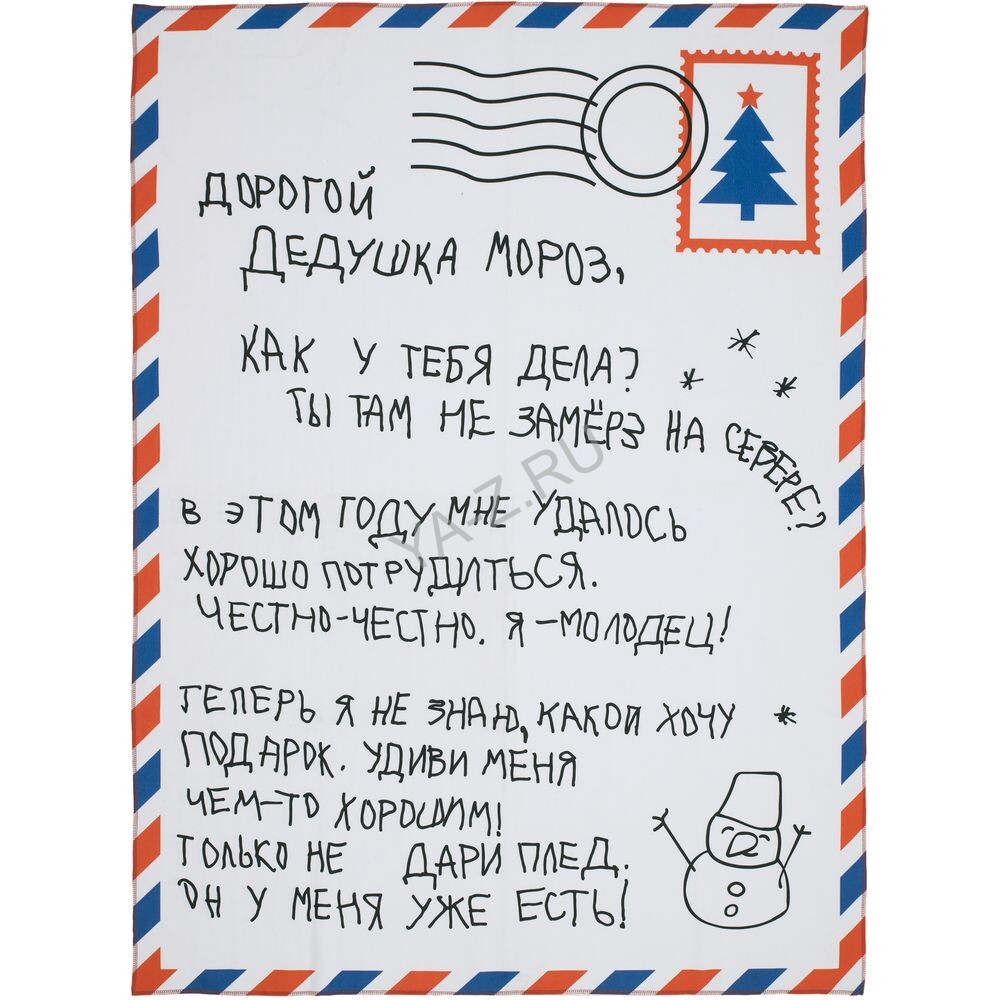 ДОРОГОЙ
ДЕДУШКА МОРОЗ,
КАК У ТЕБЯ ДЕЛА?
ТЫ ТАМ НЕ ЗАМЁРЗ НА СЕВЕРЕ?
В ЭТОМ ГОДУ МНЕ УДАЛОСЬ
ХОРОШО ПОТРУДИТЬСЯ.
ЧЕСТНО-ЧЕСТНО. Я - МОЛОДЕЦ!
ТЕПЕРЬ Я НЕ ЗНАЮ, КАКОЙ ХОЧУ
ПОДАРОК. УДИВИ МЕНЯ
ЧЕМ-ТО ХОРОШИМ!
ТОЛЬКО НЕ ДАРИ ПЛЕД.
ОН У МЕНЯ УЖЕ ЕСТЬ!
YA-Z.RU